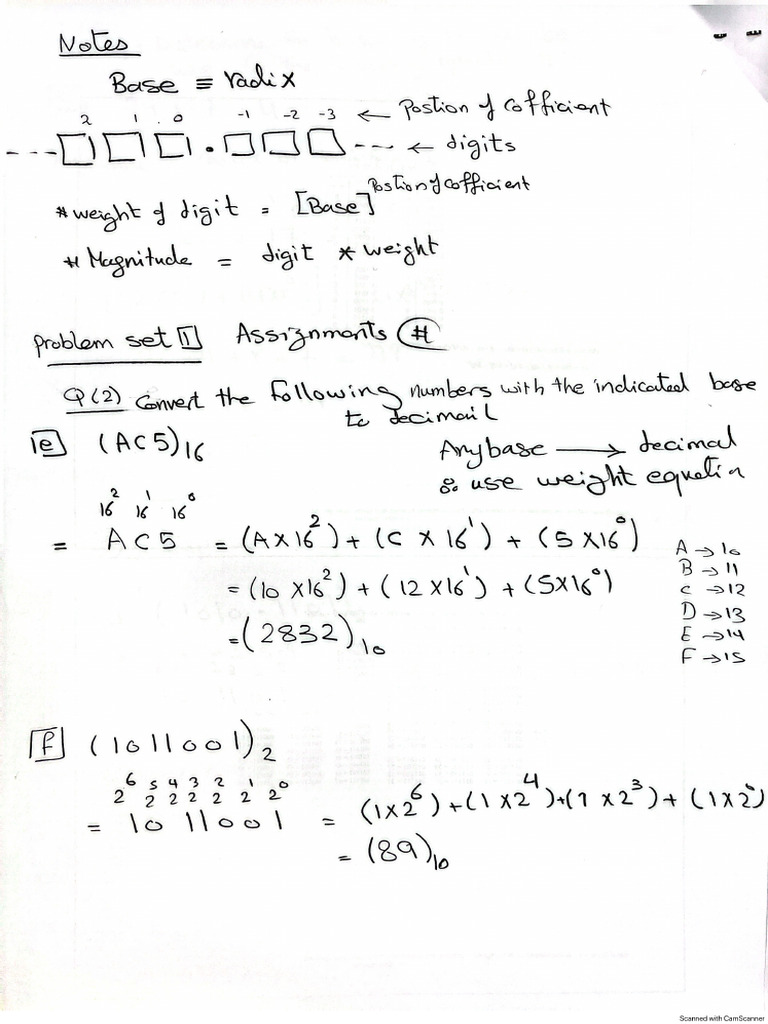 Notes
Base ≡ radix
2 1 0 -1 -2 -3 ← Postion of Cofficient
--- □ □ □ . □ □ □ --- ← digits
* weight of digit = [Base]^Postion of cofficient
* Magnitude = digit * weight
problem set 1 Assignments #
Q(2) Convert the Following numbers with the indicated base
to decimail
ie (AC5)₁₆
Any base → decimal
use weight equetion
16² 16¹ 16⁰
= A C 5 = (A × 16²) + (C × 16¹) + (5 × 16⁰)
= (10 × 16²) + (12 × 16¹) + (5 × 16⁰)
= (2832)₁₀
A → 10
B → 11
C → 12
D → 13
E → 14
F → 15
f (1011001)₂
2⁶ 2⁵ 2⁴ 2³ 2² 2¹ 2⁰
= 1011001 = (1 × 2⁶) + (1 × 2⁴) + (1 × 2³) + (1 × 2⁰)
= (89)₁₀
Scanned with CamScanner